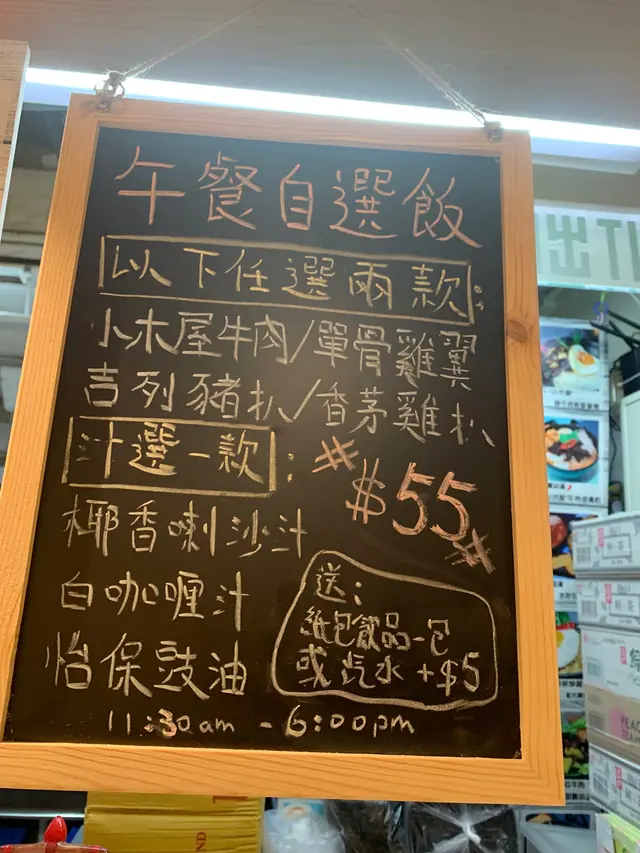 午餐自選飯
以下任選兩款:
小木屋牛肉/單骨雞翼
吉列豬扒/香茅雞扒
汁選一款:
#$55#
椰香喇沙汁
白咖喱汁
怡保豉油
送:
紙包飲品一包
或汽水+$5
11:30am - 6:00pm
出TU